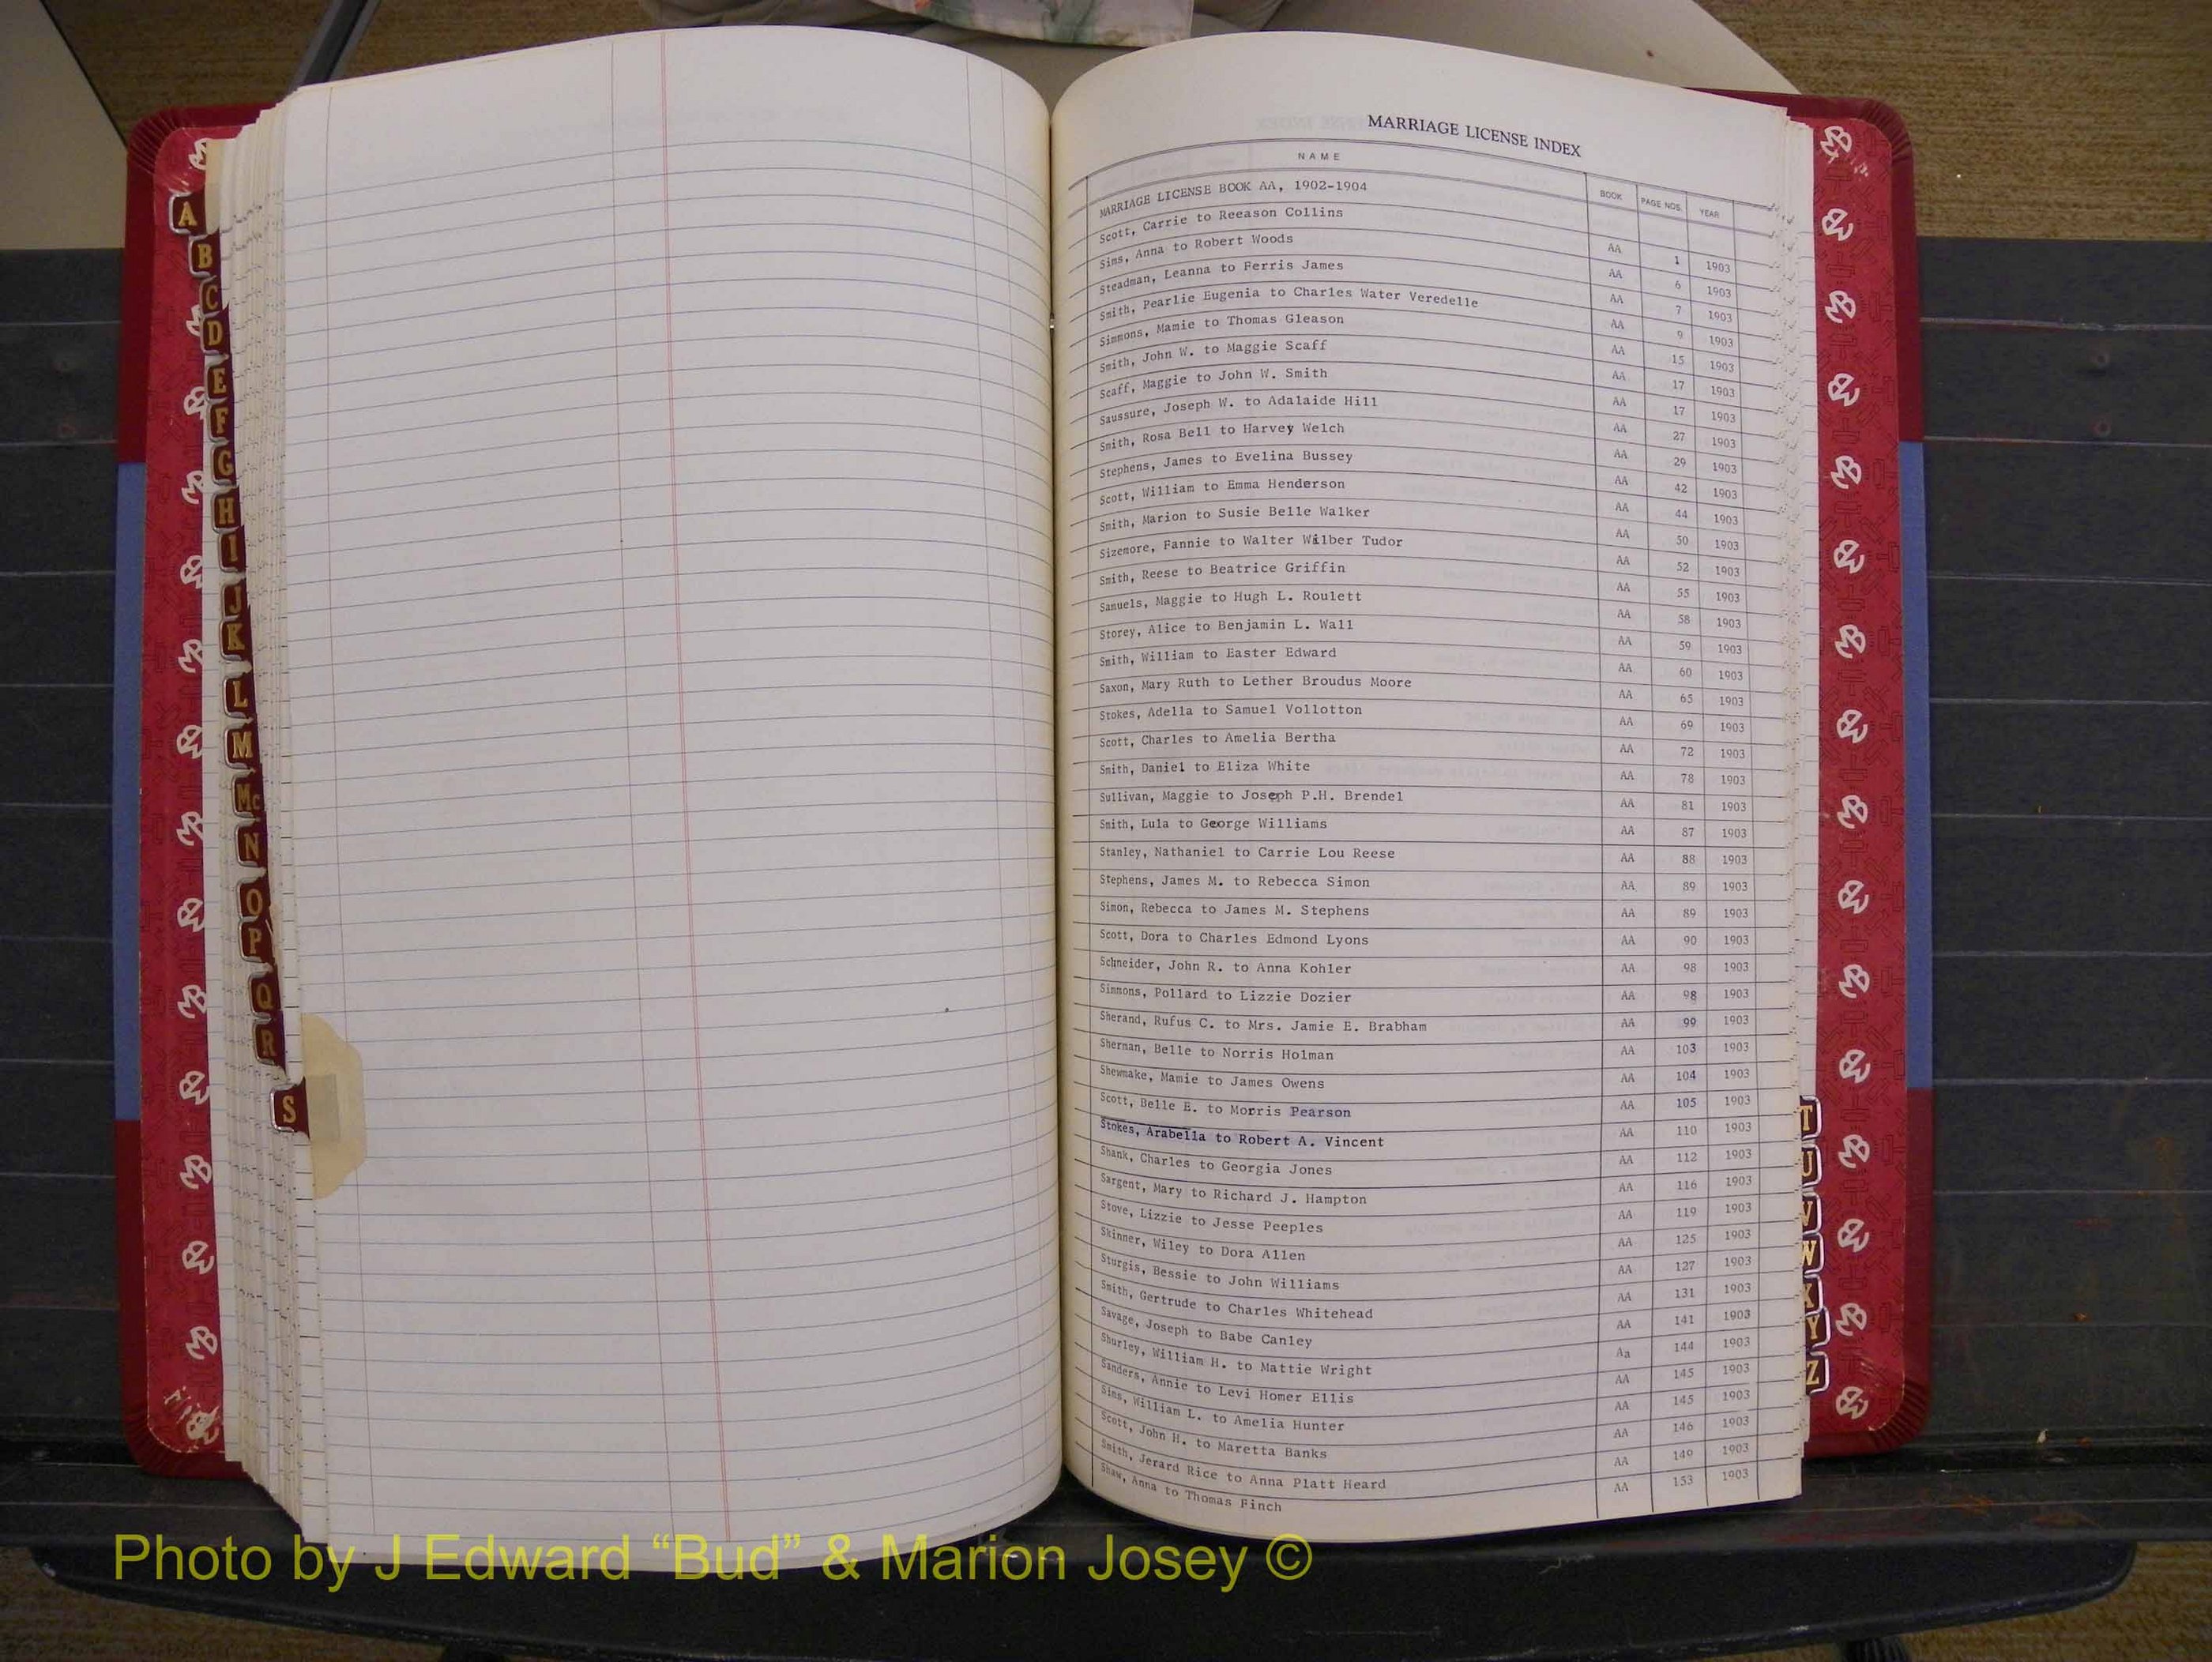 MARRIAGE LICENSE INDEX
NAME BOOK PAGE NOS. YEAR
MARRIAGE LICENSE BOOK AA, 1902-1904
Scott, Carrie to Reeason Collins AA 1 1903
Sims, Anna to Robert Woods AA 6 1903
Steadman, Leanna to Ferris James AA 7 1903
Smith, Pearlie Eugenia to Charles Water Veredelle AA 9 1903
Simmons, Mamie to Thomas Gleason AA 15 1903
Smith, John W. to Maggie Scaff AA 17 1903
Scaff, Maggie to John W. Smith AA 17 1903
Saussure, Joseph W. to Adalaide Hill AA 27 1903
Smith, Rosa Bell to Harvey Welch AA 29 1903
Stephens, James to Evelina Bussey AA 42 1903
Scott, William to Emma Henderson AA 44 1903
Smith, Marion to Susie Belle Walker AA 50 1903
Sizemore, Fannie to Walter Wilber Tudor AA 52 1903
Smith, Reese to Beatrice Griffin AA 55 1903
Samuels, Maggie to Hugh L. Roulett AA 58 1903
Storey, Alice to Benjamin L. Wall AA 59 1903
Smith, William to Easter Edward AA 60 1903
Saxon, Mary Ruth to Lether Broudus Moore AA 65 1903
Stokes, Adella to Samuel Vollotton AA 69 1903
Scott, Charles to Amelia Bertha AA 72 1903
Smith, Daniel to Eliza White AA 78 1903
Sullivan, Maggie to Joseph P.H. Brendel AA 81 1903
Smith, Lula to George Williams AA 87 1903
Stanley, Nathaniel to Carrie Lou Reese AA 88 1903
Stephens, James M. to Rebecca Simon AA 89 1903
Simon, Rebecca to James M. Stephens AA 89 1903
Scott, Dora to Charles Edmond Lyons AA 90 1903
Schneider, John R. to Anna Kohler AA 98 1903
Simmons, Pollard to Lizzie Dozier AA 98 1903
Sherand, Rufus C. to Mrs. Jamie E. Brabham AA 99 1903
Sherman, Belle to Norris Holman AA 103 1903
Shewmake, Mamie to James Owens AA 104 1903
Scott, Belle E. to Morris Pearson AA 105 1903
Stokes, Arabella to Robert A. Vincent AA 110 1903
Shank, Charles to Georgia Jones AA 112 1903
Sargent, Mary to Richard J. Hampton AA 116 1903
Stove, Lizzie to Jesse Peeples AA 119 1903
Skinner, Wiley to Dora Allen AA 125 1903
Sturgis, Bessie to John Williams AA 127 1903
Smith, Gertrude to Charles Whitehead AA 131 1903
Savage, Joseph to Babe Canley AA 141 1903
Shurley, William H. to Mattie Wright Aa 144 1903
Sanders, Annie to Levi Homer Ellis AA 145 1903
Sims, William L. to Amelia Hunter AA 145 1903
Scott, John H. to Maretta Banks AA 146 1903
Smith, Jerard Rice to Anna Platt Heard AA 149 1903
Shaw, Anna to Thomas Finch AA 153 1903
A
B
C
D
E
F
G
H
I
J
K
L
M
Mc
N
O
P
Q
R
S
T
U
V
W
X
Y
Z
Photo by J Edward “Bud” & Marion Josey ©